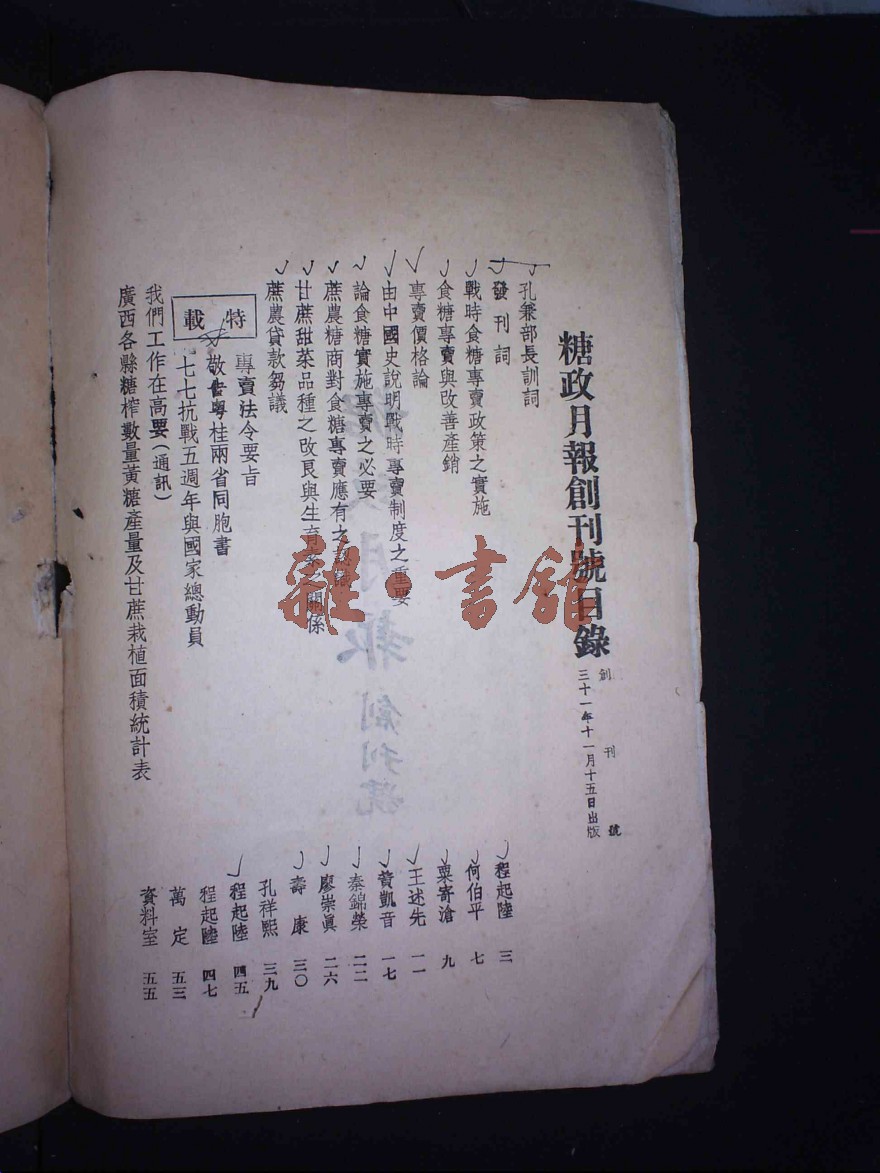 糖政月報創刊號目錄
創刊號
三十一年十一月十五日出版
孔兼部長訓詞
發刊詞 程起陸 三
戰時食糖專賣政策之實施 何伯平 七
食糖專賣與改善產銷 粟寄滄 九
專賣價格論 王述先 一一
由中國史說明戰時專賣制度之重要 黃凱音 一七
論食糖實施專賣之必要 秦錦榮 二二
蔗農糖商對食糖專賣應有之 廖崇眞 二六
甘蔗甜菜品種之改良與生育 關係 壽康 三〇
蔗農貸款芻議
特載
專賣法令要旨 孔祥熙 三九
敬告粵桂兩省同胞書 程起陸 四五
七七抗戰五週年與國家總動員 程起陸 四七
我們工作在高要(通訊) 萬定 五三
廣西各縣糖榨數量黃糖產量及甘蔗栽植面積統計表 資料室 五五
雜·書館
月報
創刊號